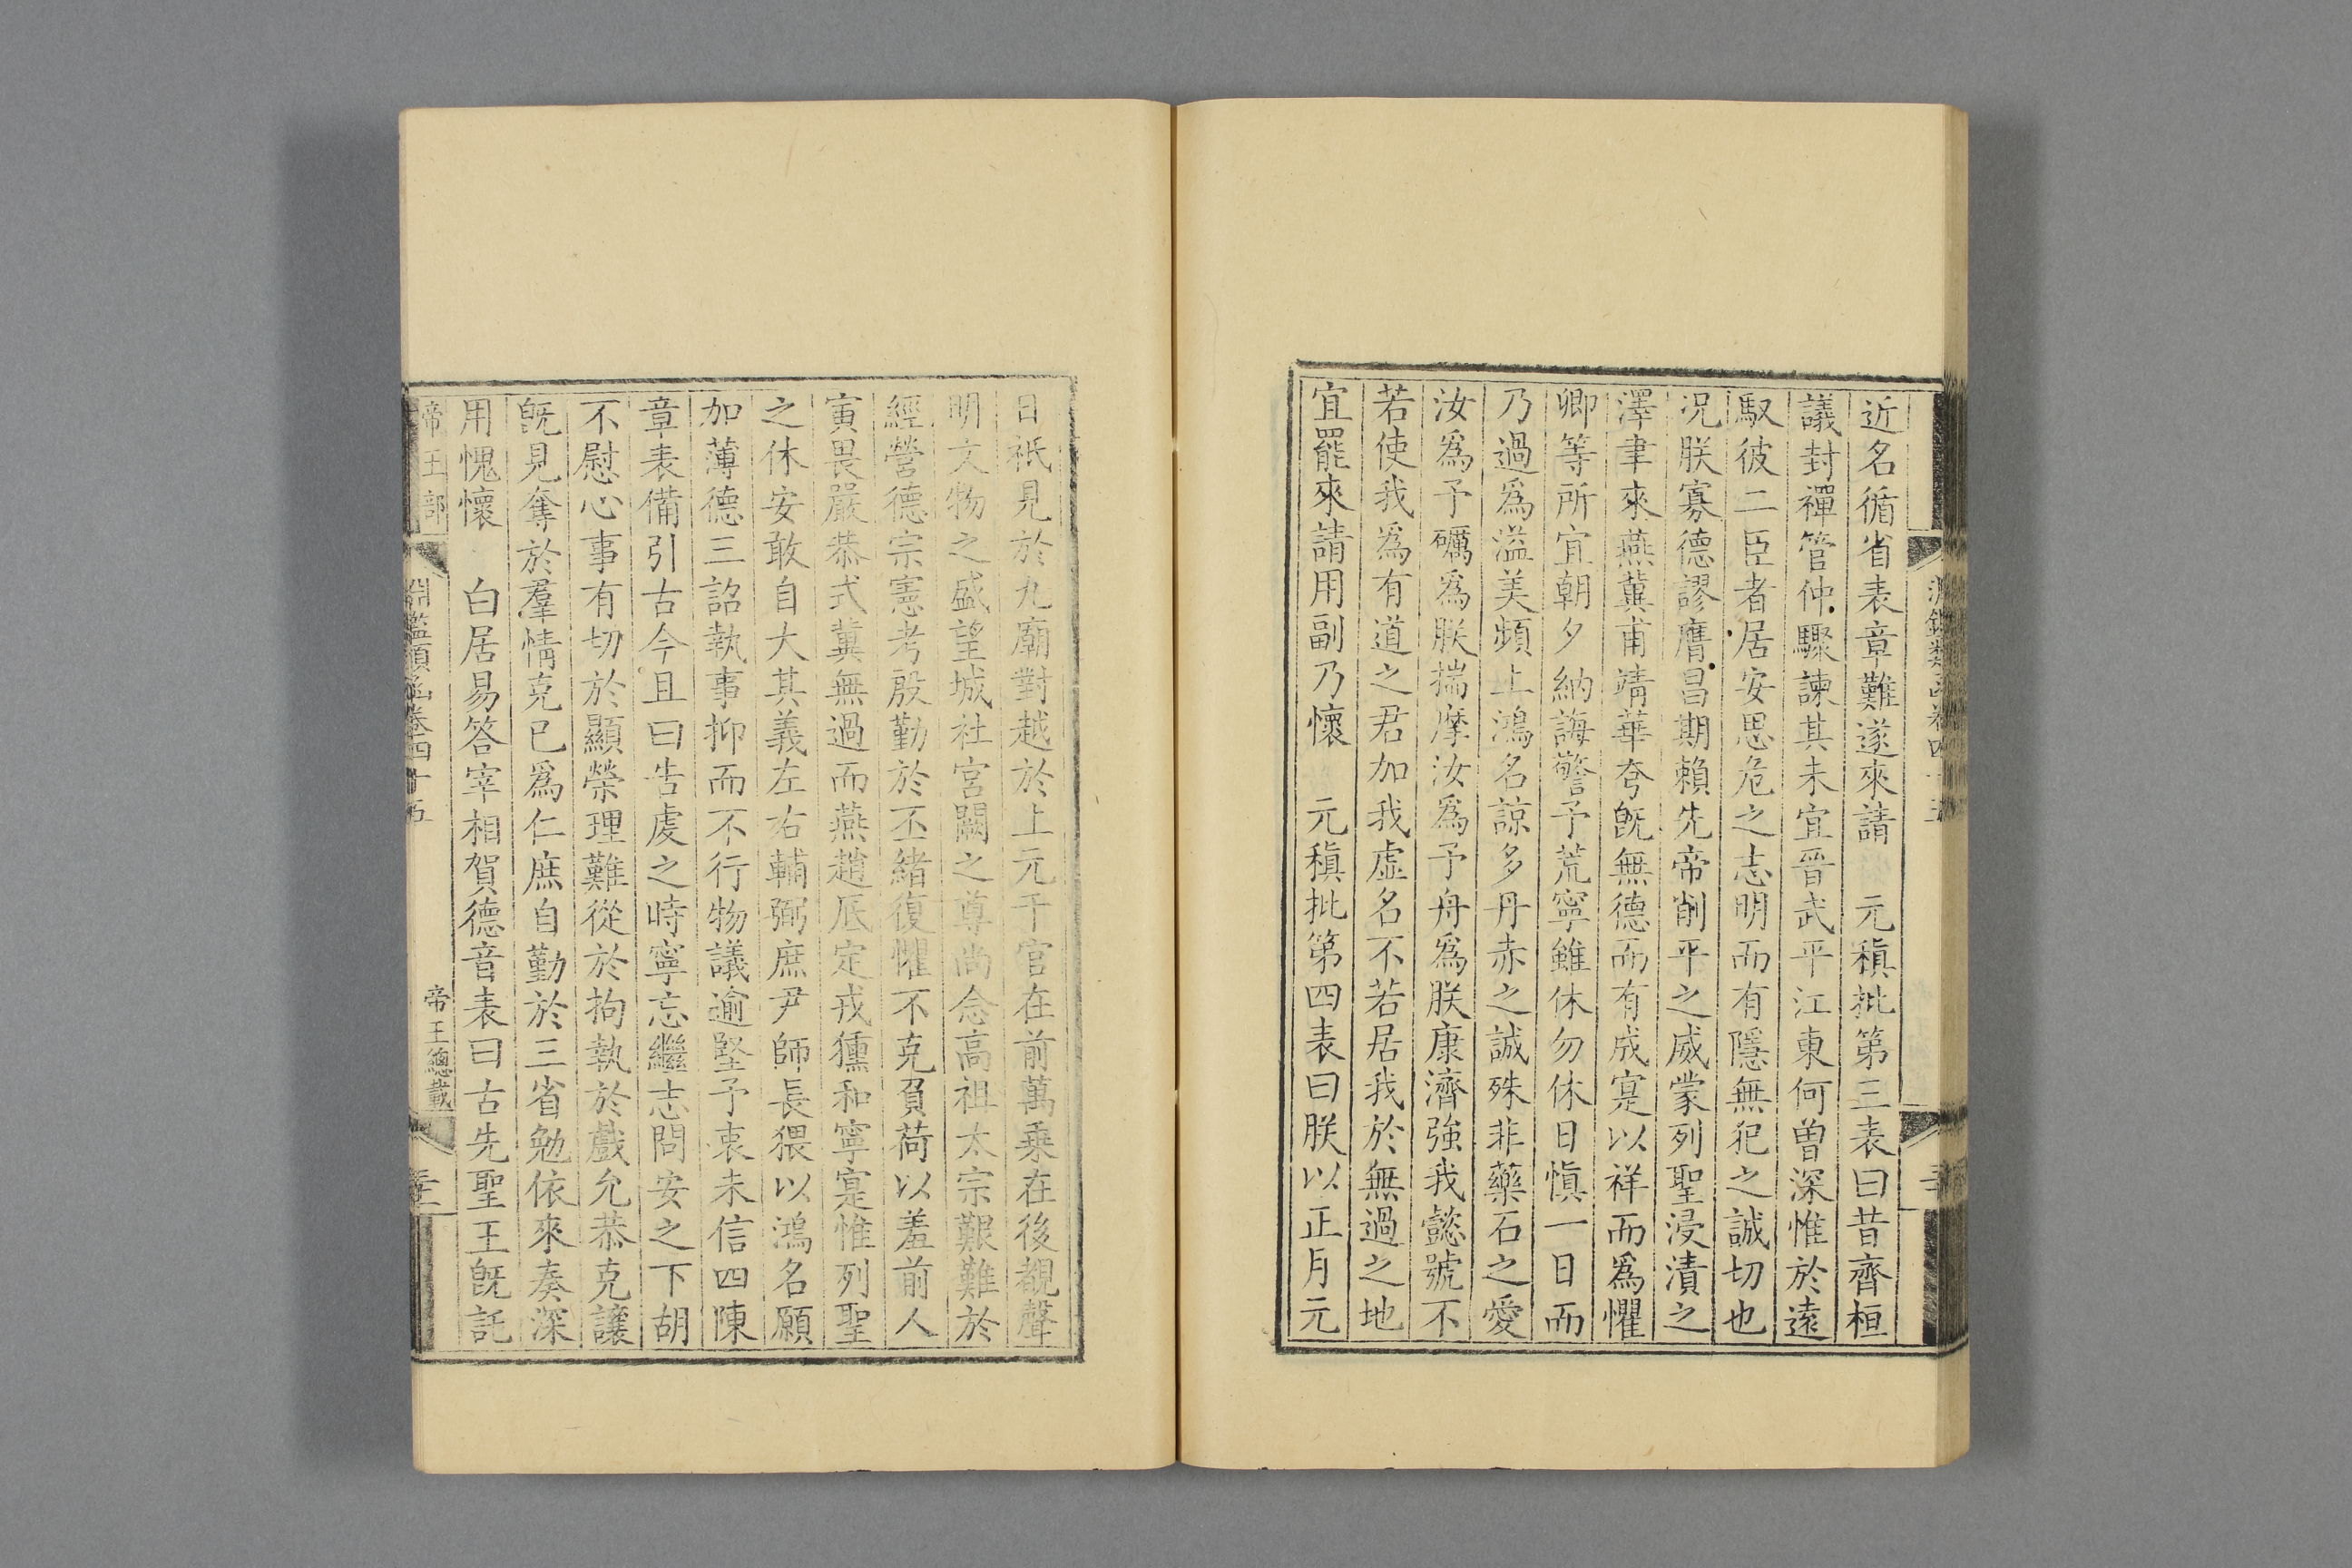 近名循省表章難遂來請　元稹批第三表曰昔齊桓
議封禪管仲驟諫其未宜晉武平江東何曾深惟於遠
馭彼二臣者居安思危之志明而有隱無犯之誠切也
況朕寡德謬膺昌期賴先帝削平之威蒙列聖浸漬之
澤聿來燕冀甫靖華夸旣無德而有成寔以祥而爲懼
卿等所宜朝夕納誨警予荒寧雖休勿休日慎一日而
乃過爲溢美頻上鴻名諒多丹赤之誠殊非藥石之愛
汝爲予礪爲朕揣摩汝爲予舟爲朕康濟強我懿號不
若使我爲有道之君加我虛名不若居我於無過之地
宜罷來請用副乃懷　元稹批第四表曰朕以正月元
日祇見於九廟對越於上元千官在前萬乗在後覩聲
明文物之盛望城社宮闕之尊尚念高祖太宗艱難於
經營德宗憲考殷勤於丕緒復懼不克負荷以羞前人
寅畏嚴恭式冀無過而燕趙底定戎獯和寧寔惟列聖
之休安敢自大其義左右輔弼庶尹師長猥以鴻名願
加薄德三詔執事抑而不行物議逾堅予衷未信四陳
章表備引古今且曰告虔之時寧忘繼志問安之下胡
不慰心事有切於顯榮理難從於拘執於戲允恭克讓
旣見奪於羣情克已爲仁庶自勤於三省勉依來奏深
用愧懷　白居易答宰相賀德音表曰古先聖王旣託
帝王部
淵鑑類函卷四十五
帝王總載